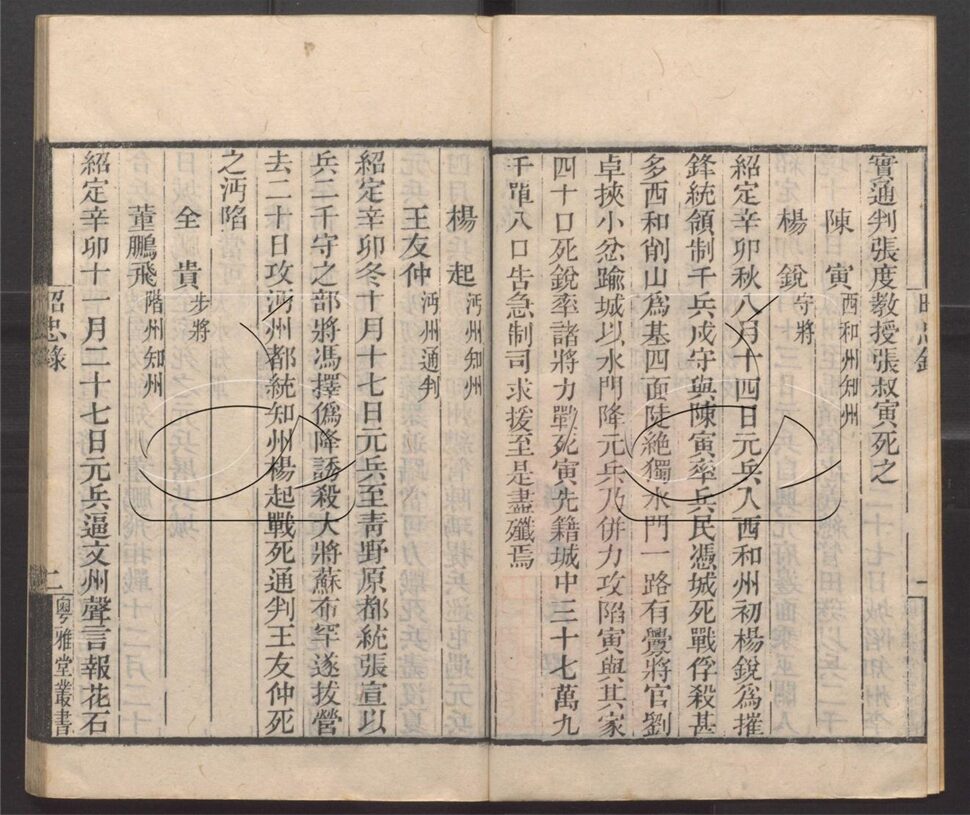 實通判張度教授張叔寅死之
陳寅西和州知州
楊銳守將
紹定辛卯秋八月十四日元兵入西和州初楊銳爲摧
鋒統領制千兵戍守與陳寅率兵民憑城死戰俘殺甚
多西和削山爲基四面陡絶獨水門一路有釁將官劉
卓挾小忿踰城以水門降元兵乃併力攻陷寅與其家
四十口死銳率諸將力戰死寅先籍城中三十七萬九
千單八口告急制司求援至是盡殲焉
楊起沔州知州
王友仲沔州通判
紹定辛卯冬十月十七日元兵至靑野原都統張宣以
兵二千守之部將馮擇僞降誘殺大將蘇布罕遂拔營
去二十日攻沔州都統知州楊起戰死通判王友仲死
之沔陷
全貴步將
董鵬飛階州知州
紹定辛卯十一月二十七日元兵逼文州聲言報花石
昭忠錄
二
粵雅堂叢書